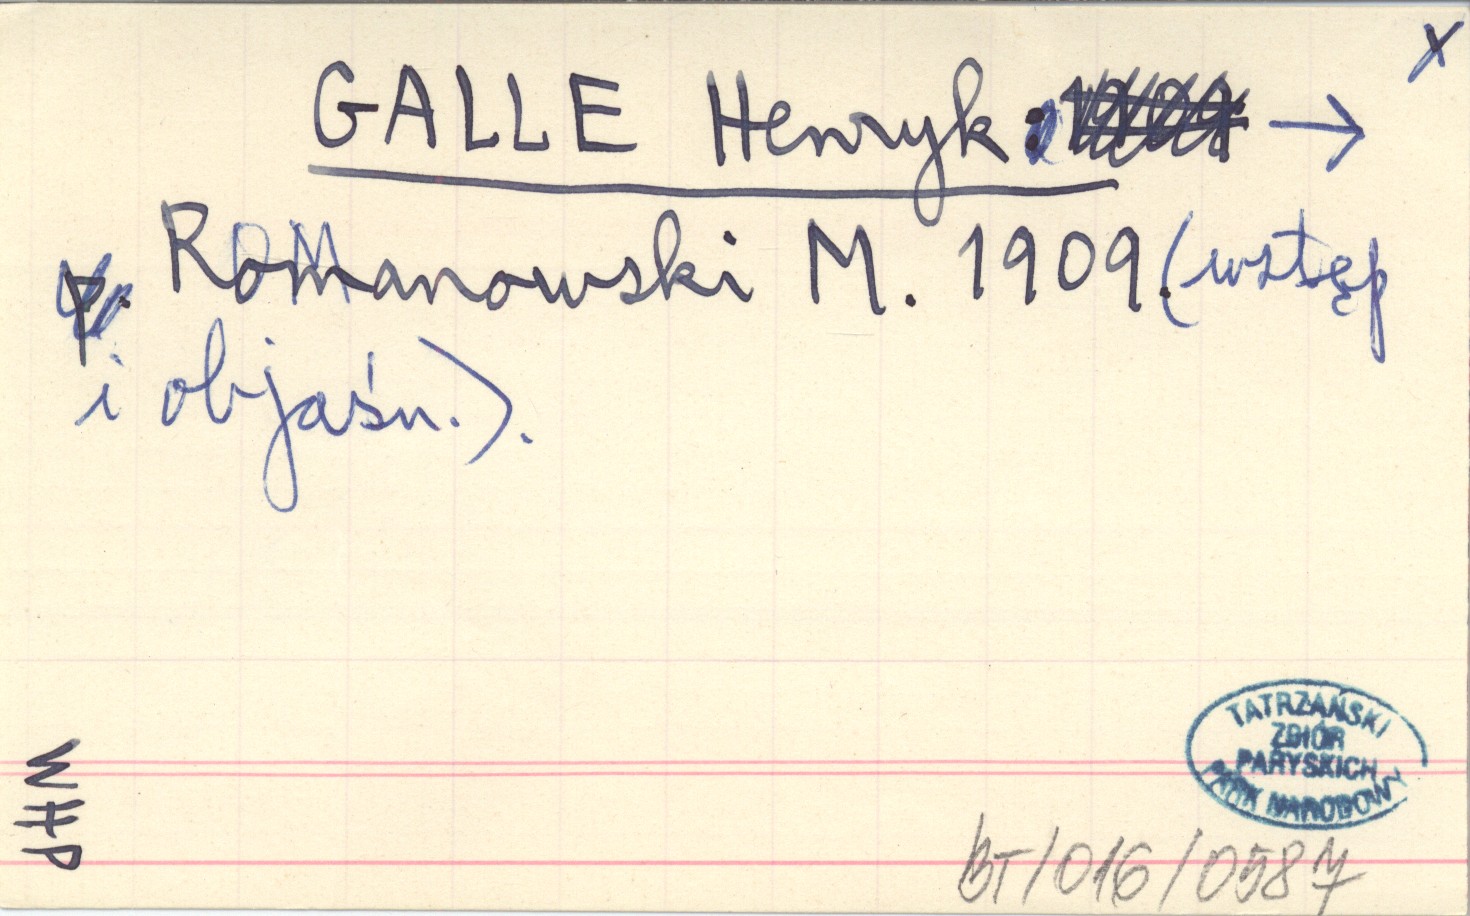 x
GALLE Henryk: →
p. Romanowski M. 1909. (wstęp
i objaśn.).
WHP
TATRZAŃSKI
ZBIÓR
PARYSKICH
PARK NARODOWY
BT/016/0587